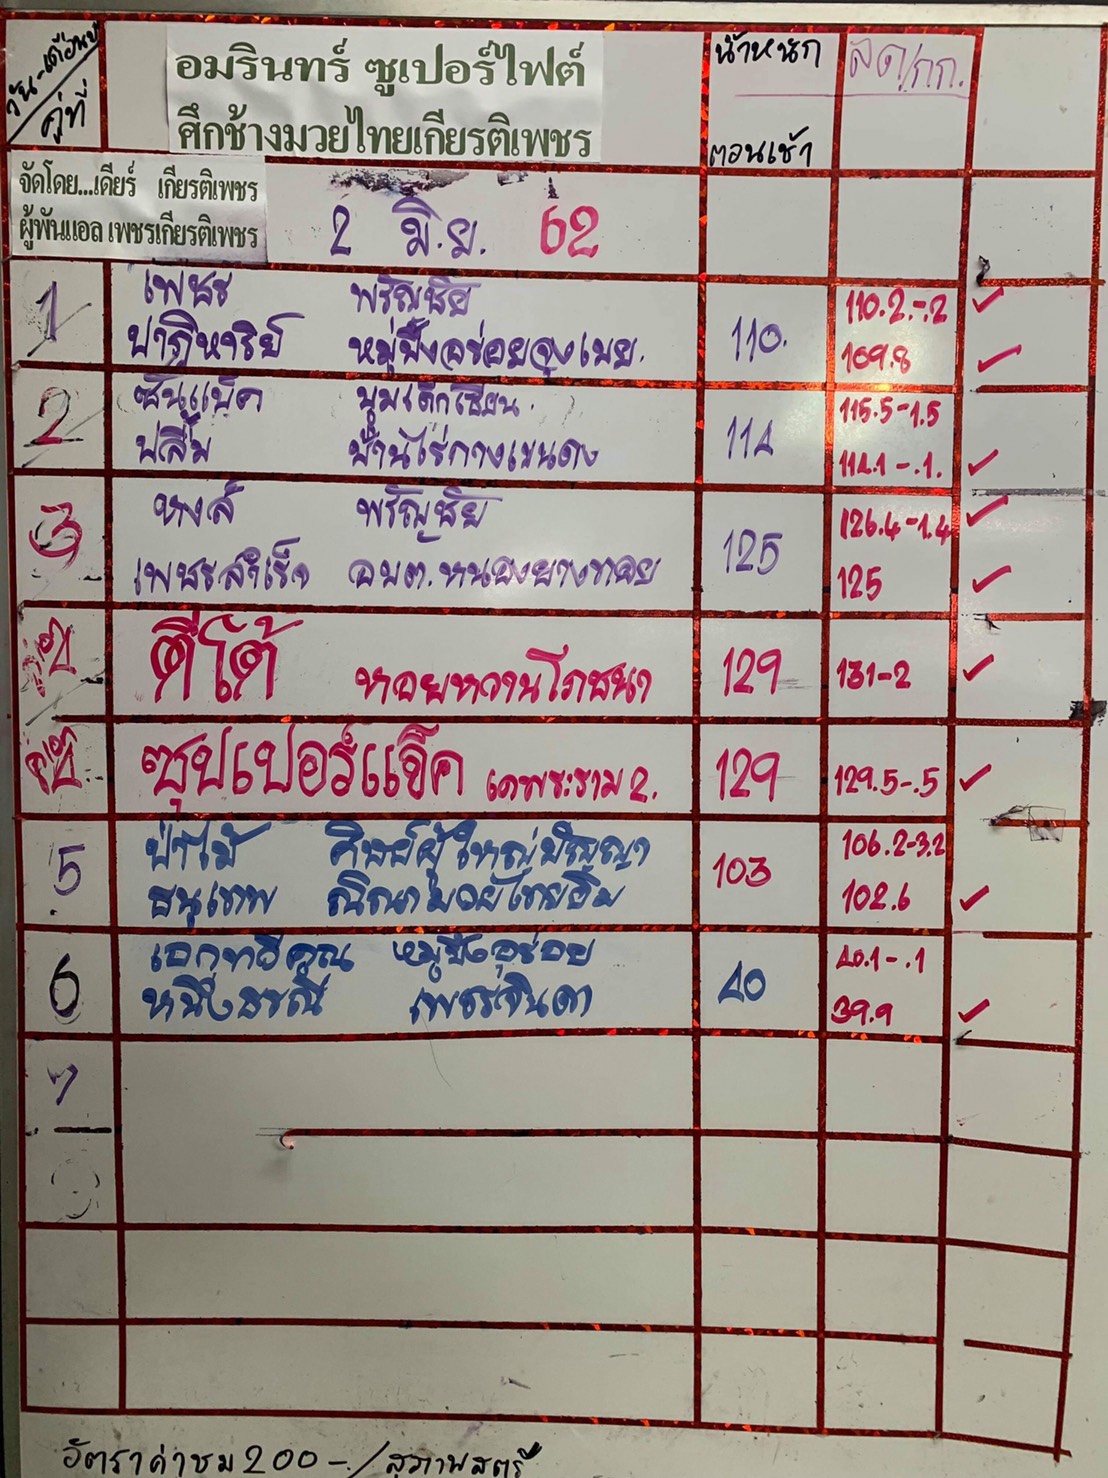 วัน-เดือนปี
คู่ที่
อมรินทร์ ซูเปอร์ไฟต์
ศึกช้างมวยไทยเกียรติเพชร
น้ำหนัก
ตอนเช้า
ลด/กก.
จัดโดย...เดียร์ เกียรติเพชร
ผู้พันแอล เพชรเกียรติเพชร
2 มิ.ย. 62
1 เพชร พรัญชัย 110. 110.2-.2 ✓
ปาฏิหาริย์ หมูปิ้งอร่อยจุงเบย. 109.8 ✓
2 ซันแบ็ค 114 115.5-1.5
ปลื้ม บ้านไร่กางเขนดง 114.1-.1. ✓
3 หงส์ พรัญชัย 125 126.4-1.4 ✓
เพชรสำเร็จ อบต.หนองยางทอย 125 ✓
คู่ข ตีโต้ หอยหวานโภชนา 129 131-2 ✓
ซุปเปอร์แจ็ค เดพระราม 2. 129 129.5-.5 ✓
5 ป่าไม้ ศิษย์ผู้ใหญ่ปัญญา 103 106.2-3.2
ธนูเทพ ณิณามวยไทยยิม 102.6 ✓
6 เอกทวีคูณ หมูปิ้งอร่อย 40 40.1-.1
หนึ่งธรณี เพชรจินดา 39.9 ✓
7
อัตราค่าชม 200-/สุภาพสตรี